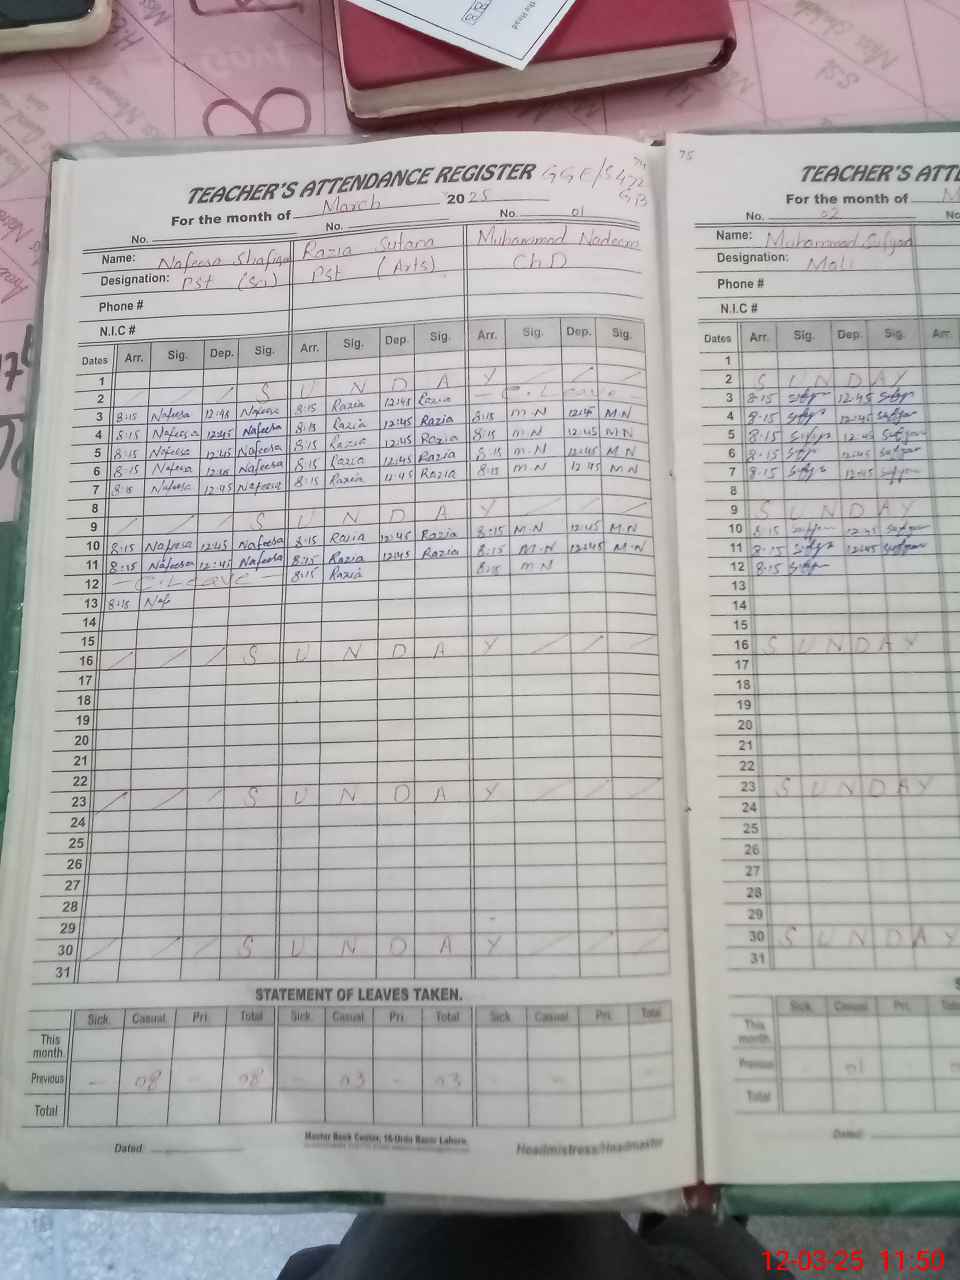 TEACHER'S ATTENDANCE REGISTER GGE/S 472 GB
74
For the month of March 2025
No. No. No. 01
Name: Nafeesa Shafique Razia Sutana Muhammad Nadeem
Designation: Pst (Sci) Pst (Arts) Ch.D
Phone #
N.I.C #
Dates Arr. Sig. Dep. Sig. Arr. Sig. Dep. Sig. Arr. Sig. Dep. Sig.
1
2 S U N D A Y
3 8:15 Nafeesa 12:45 Nafeesa 8:15 Razia 12:45 Razia — C. Leave —
4 8:15 Nafeesa 12:45 Nafeesa 8:15 Razia 12:45 Razia 8:15 M.N 12:45 M.N
5 8:15 Nafeesa 12:45 Nafeesa 8:15 Razia 12:45 Razia 8:15 M.N 12:45 M.N
6 8:15 Nafeesa 12:45 Nafeesa 8:15 Razia 12:45 Razia 8:15 M.N 12:45 M.N
7 8:15 Nafeesa 12:45 Nafeesa 8:15 Razia 12:45 Razia 8:15 M.N 12:45 M.N
8
9 S U N D A Y
10 8:15 Nafeesa 12:45 Nafeesa 8:15 Razia 12:45 Razia 8:15 M.N 12:45 M.N
11 8:15 Nafeesa 12:45 Nafeesa 8:15 Razia 12:45 Razia 8:15 M.N 12:45 M.N
12 — C. Leave — 8:15 Razia 8:15 M.N
13 8:15 Nafe
14
15
16 S U N D A Y
17
18
19
20
21
22
23 S U N D A Y
24
25
26
27
28
29
30 S U N D A Y
31
STATEMENT OF LEAVES TAKEN.
Sick. Casual Pri. Total Sick. Casual Pri. Total Sick. Casual Pri. Total
This month.
Previous - 08 - 08 - 03 - 03 - - -
Total
Dated:
Master Book Center, 16-Urdu Bazar Lahore.
Headmistress/Headmaster
75
TEACHER'S ATTE
For the month of M
No. 02 No.
Name: Muhammad Sufyan
Designation: Mali
Phone #
N.I.C #
Dates Arr. Sig. Dep. Sig. Arr.
1
2 S U N D A Y
3 8:15 12:45
4 8:15 12:45 Sufyan
5 8:15 12:45 Sufyan
6 8:15 12:45 Sufyan
7 8:15 12:45 Sufyan
8
9 S U N D A Y
10 8:15 12:45 Sufyan
11 8:15 12:45 Sufyan
12 8:15
13
14
15
16 S U N D A Y
17
18
19
20
21
22
23 S U N D A Y
24
25
26
27
28
29
30 S U N D A Y
31
S
Sick. Casual Pri.
This month.
Previous 01
Total
Dated:
12-03-25 11:50